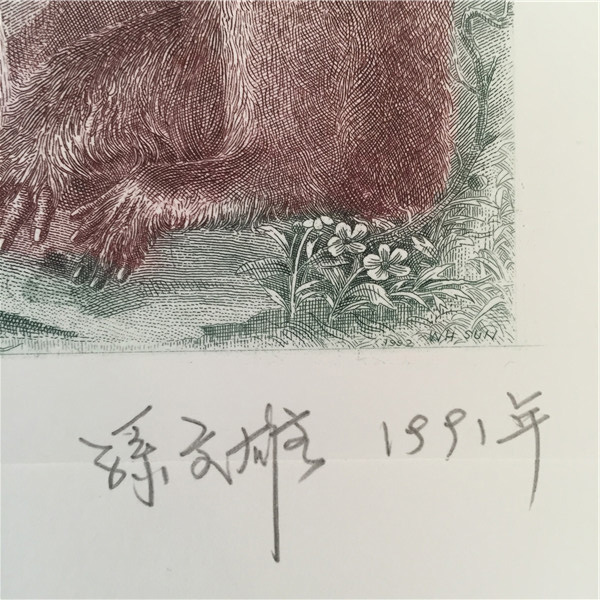 1992 WH SUN
孫文雄 1991年